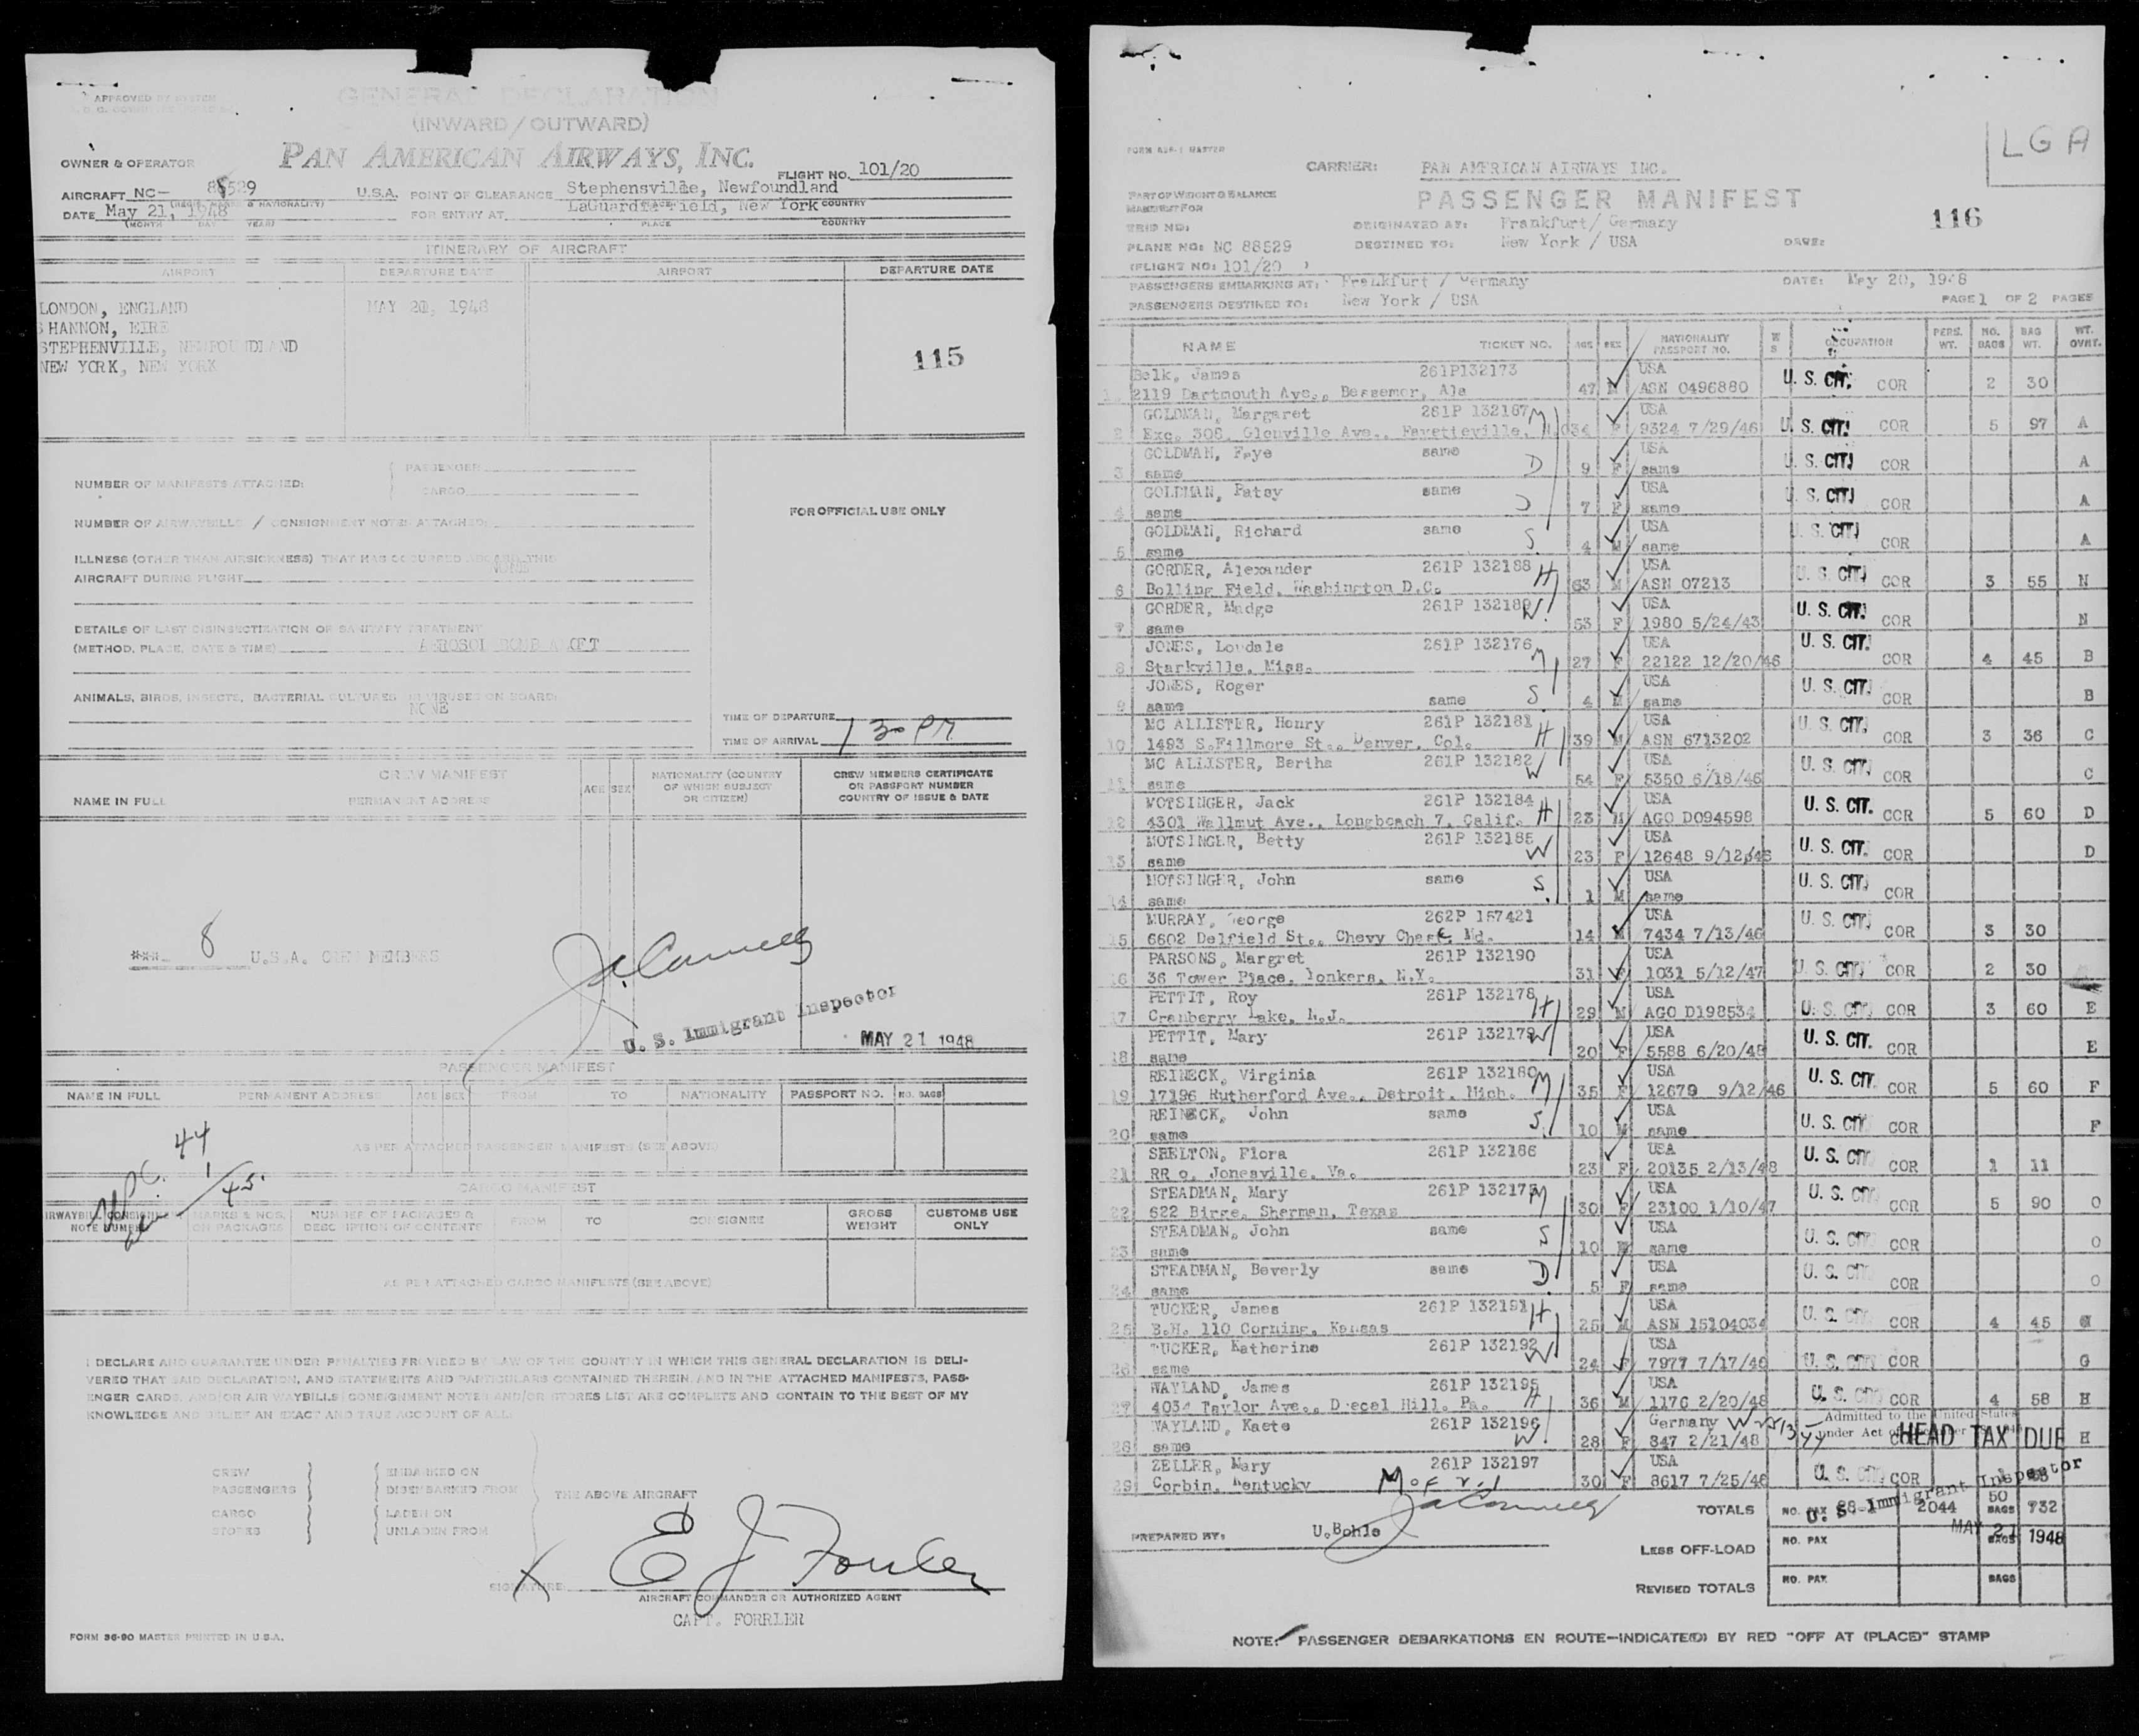 GENERAL DECLARATION
(INWARD/OUTWARD)
OWNER & OPERATOR PAN AMERICAN AIRWAYS, INC.
FLIGHT NO. 101/20
AIRCRAFT NC- 88529 U.S.A. POINT OF CLEARANCE Stephensville, Newfoundland
DATE May 21, 1948 FOR ENTRY AT LaGuardia Field, New York COUNTRY
(MONTH DAY YEAR) PLACE COUNTRY
ITINERARY OF AIRCRAFT
AIRPORT DEPARTURE DATE AIRPORT DEPARTURE DATE
LONDON, ENGLAND MAY 20, 1948
SHANNON, EIRE
STEPHENVILLE, NEWFOUNDLAND
NEW YORK, NEW YORK
115
NUMBER OF MANIFESTS ATTACHED: PASSENGER
CARGO
FOR OFFICIAL USE ONLY
NUMBER OF AIRWAYBILLS / CONSIGNMENT NOTES ATTACHED:
ILLNESS (OTHER THAN AIRSICKNESS) THAT HAS OCCURRED ABOARD THIS
AIRCRAFT DURING FLIGHT
DETAILS OF LAST DISINSECTIZATION OR SANITARY TREATMENT
(METHOD, PLACE, DATE & TIME) AEROSOL BOMB
ANIMALS, BIRDS, INSECTS, BACTERIAL CULTURES OR VIRUSES ON BOARD:
NONE
TIME OF DEPARTURE
TIME OF ARRIVAL 1 30 PM
CREW MANIFEST
NAME IN FULL PERMANENT ADDRESS AGE SEX NATIONALITY (COUNTRY OF WHICH SUBJECT OR CITIZEN) CREW MEMBERS CERTIFICATE OR PASSPORT NUMBER COUNTRY OF ISSUE & DATE
*** 8 U.S.A. CREW MEMBERS
U. S. Immigrant Inspector
MAY 21 1948
PASSENGER MANIFEST
NAME IN FULL PERMANENT ADDRESS AGE SEX FROM TO NATIONALITY PASSPORT NO. NO. BAGS
44
1
45.
AS PER ATTACHED PASSENGER MANIFESTS (SEE ABOVE)
CARGO MANIFEST
AIRWAYBILL/CONSIGNMENT NOTE NUMBER MARKS & NOS. ON PACKAGES NUMBER OF PACKAGES & DESCRIPTION OF CONTENTS FROM TO CONSIGNEE GROSS WEIGHT CUSTOMS USE ONLY
AS PER ATTACHED CARGO MANIFESTS (SEE ABOVE)
I DECLARE AND GUARANTEE UNDER PENALTIES PROVIDED BY LAW OF THE COUNTRY IN WHICH THIS GENERAL DECLARATION IS DELI-
VERED THAT SAID DECLARATION, AND STATEMENTS AND PARTICULARS CONTAINED THEREIN, AND IN THE ATTACHED MANIFESTS, PASS-
ENGER CARDS, AND/OR AIR WAYBILLS/CONSIGNMENT NOTES AND/OR STORES LIST ARE COMPLETE AND CONTAIN TO THE BEST OF MY
KNOWLEDGE AND BELIEF AN EXACT AND TRUE ACCOUNT OF ALL
CREW EMBARKED ON
PASSENGERS DISEMBARKED FROM THE ABOVE AIRCRAFT
CARGO LADEN ON
STORES UNLADEN FROM
X SIGNATURE
AIRCRAFT COMMANDER OR AUTHORIZED AGENT
CAPT. FORRLER
FORM 36-90 MASTER PRINTED IN U.S.A.
LGA
CARRIER: PAN AMERICAN AIRWAYS INC.
PASSENGER MANIFEST
PART OF WEIGHT & BALANCE
MANIFEST FOR
116
TRIP NO: ORIGINATED AT: Frankfurt/ Germany
PLANE NO: NC 88529 DESTINED TO: New York / USA
(FLIGHT NO: 101/20 )
PASSENGERS EMBARKING AT: Frankfurt / Germany DATE: May 20, 1948
PASSENGERS DESTINED TO: New York / USA PAGE 1 OF 2 PAGES
NAME TICKET NO. AGE SEX NATIONALITY PASSPORT NO. OCCUPATION PERS. WT. NO. BAGS BAG WT. WT. OVNT.
Belk, James 261P132173 USA
1 2119 Dartmouth Ave., Bessemer, Ala 47 M ASN 0496880 U. S. CIT. COR 2 30
GOLDMAN, Margaret 261P 132167 M USA
2 Exc. 308, Glenville Ave., Fayetteville, 34 F 9324 7/29/46 U. S. CIT. COR 5 97 A
GOLDMAN, Faye same D USA
3 same 9 F same U. S. CIT. COR A
GOLDMAN, Patsy same D USA
4 same 7 F same U. S. CIT. COR A
GOLDMAN, Richard same S USA
5 same 4 M same U. S. CIT. COR A
GORDER, Alexander 261P 132188 H USA
6 Bolling Field, Washington D.C. 63 M ASN 07213 U. S. CIT. COR 3 55 N
GORDER, Madge 261P 132189 W USA
7 same 53 F 1980 5/24/43 U. S. CIT. COR N
JONES, Lovdale 261P 132176 M USA
8 Starkville, Miss. 27 F 22122 12/20/46 U. S. CIT. COR 4 45 B
JONES, Roger same S USA
9 same 4 M same U. S. CIT. COR B
MC ALLISTER, Henry 261P 132181 H USA
10 1493 S.Fillmore St., Denver, Col. 39 M ASN 6713202 U. S. CIT. COR 3 36 C
MC ALLISTER, Bertha 261P 132182 W USA
11 same 54 F 5350 6/18/46 U. S. CIT. COR C
MOTSINGER, Jack 261P 132184 H USA
12 4301 Wallmut Ave., Longbeach 7, Calif. 23 M AGO D094598 U. S. CIT. COR 5 60 D
MOTSINGER, Betty 261P 132185 W USA
13 same 23 F 12648 9/12/46 U. S. CIT. COR D
MOTSINGER, John same S USA
14 same 1 M same U. S. CIT. COR
MURRAY, George 262P 157421 USA
15 6602 Delfield St., Chevy Chase, Md. 14 M 7434 7/13/46 U. S. CIT. COR 3 30
PARSONS, Margret 261P 132190 USA
16 36 Tower Place, Yonkers, N.Y. 31 F 1031 5/12/47 U. S. CIT. COR 2 30
PETTIT, Roy 261P 132178 H USA
17 Cranberry Lake, N.J. 29 M AGO D198534 U. S. CIT. COR 3 60 E
PETTIT, Mary 261P 132179 W USA
18 same 20 F 5588 6/20/48 U. S. CIT. COR E
REINECK, Virginia 261P 132180 M USA
19 17196 Rutherford Ave., Detroit, Mich. 35 F 12679 9/12/46 U. S. CIT. COR 5 60 F
REINECK, John same S USA
20 same 10 M same U. S. CIT. COR F
SHELTON, Flora 261P 132186 USA
21 RR o, Jonesville, Va. 23 F 20135 2/13/48 U. S. CIT. COR 1 11
STEADMAN, Mary 261P 132175 M USA
22 622 Birge, Sherman, Texas 30 F 23100 1/10/47 U. S. CIT. COR 5 90 O
STEADMAN, John same S USA
23 same 10 M same U. S. CIT. COR O
STEADMAN, Beverly same D USA
24 same 5 F same U. S. CIT. COR O
TUCKER, James 261P 132191 H USA
25 B.H. 110 Corning, Kansas 25 M ASN 15104034 U. S. CIT. COR 4 45 G
TUCKER, Katherine 261P 132192 W USA
26 same 24 F 7977 7/17/46 U. S. CIT. COR G
WAYLAND, James 261P 132195 H USA
27 4034 Taylor Ave., Drecel Hill, Pa. 36 M 1176 2/20/48 U. S. CIT. COR 4 58 H
WAYLAND, Kaete 261P 132196 W Germany Admitted to the United States
28 same 28 F 347 2/21/48 under Act of HEAD TAX DUE H
ZELLER, Mary 261P 132197 USA
29 Corbin, Kentucky 30 F 8617 7/25/46 U. S. CIT. COR
U. S. Immigrant Inspector
TOTALS NO. PAX 28-1 2044 50 BAGS 732
MAY 21 1948
PREPARED BY: U.Bohle
LESS OFF-LOAD NO. PAX BAGS
REVISED TOTALS NO. PAX BAGS
NOTE: PASSENGER DEBARKATIONS EN ROUTE-INDICATE(D) BY RED "OFF AT (PLACE)" STAMP